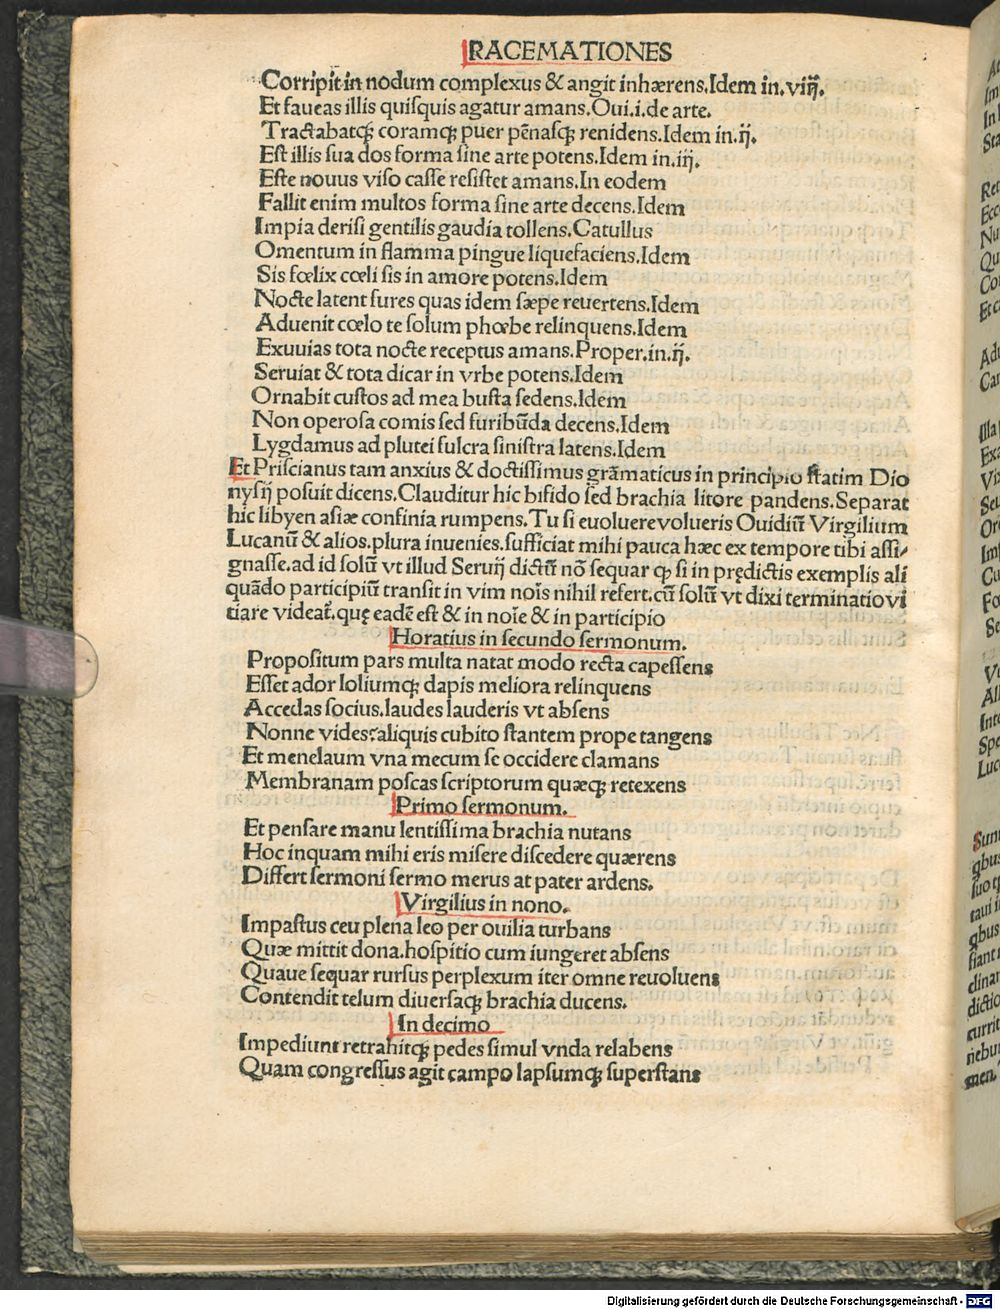 RACEMATIONES
Corripit in nodum complexus & angit inhærens.Idem in.viiȷ̈.
Et faueas illis quiſquis agatur amans.Oui.i.de arte.
Tractabatqꝫ coramqꝫ puer pēnaſqꝫ renidens.Idem in.ij.
Eſt illis ſua dos forma ſine arte potens.Idem in.iij.
Eſte nouus viſo caſſe reſiſtet amans.In eodem
Fallit enim multos forma ſine arte decens.Idem
Impia deriſi gentilis gaudia tollens.Catullus
Omentum in flamma pingue liquefaciens.Idem
Sis fœlix cœli ſis in amore potens.Idem
Nocte latent fures quas idem ſæpe reuertens.Idem
Aduenit cœlo te ſolum phœbe relinquens.Idem
Exuuias tota nocte receptus amans.Proper.in.ij.
Seruiat & tota dicar in vrbe potens.Idem
Ornabit cuſtos ad mea buſta ſedens.Idem
Non operoſa comis ſed furibūda decens.Idem
Lygdamus ad plutei fulcra ſiniſtra latens.Idem
Et Priſcianus tam anxius & doctiſſimus grāmaticus in principio ſtatim Dio
nyſij poſuit dicens.Clauditur hic bifido ſed brachia litore pandens.Separat
hic libyen aſiæ confinia rumpens.Tu ſi euoluere volueris Ouidiū Virgilium
Lucanū & alios.plura inuenies.ſufficiat mihi pauca hæc ex tempore tibi aſſi⸗
gnaſſe.ad id ſolū vt illud Seruij dictū nō ſequar ꝙ ſi in prędictis exemplis ali
quādo participiū tranſit in vim nois̄ nihil refert.cū ſolū vt dixi terminatio vi
tiare videat᷑.quę eadē eſt & in noīe & in participio
Horatius in ſecundo ſermonum.
Propoſitum pars multa natat modo recta capeſſens
Eſſet ador loliumqꝫ dapis meliora relinquens
Accedas ſocius.laudes lauderis vt abſens
Nonne vides?aliquis cubito ſtantem prope tangens
Et menelaum vna mecum ſe occidere clamans
Membranam poſcas ſcriptorum quæqꝫ retexens
Primo ſermonum.
Et penſare manu lentiſſima brachia nutans
Hoc inquam mihi eris miſere diſcedere quærens
Differt ſermoni ſermo merus at pater ardens.
Virgilius in nono.
Impaſtus ceu plena leo per ouilia turbans
Quæ mittit dona.hoſpitio cum iungeret abſens
Quaue ſequar rurſus perplexum iter omne reuoluens
Contendit telum diuerſaqꝫ brachia ducens.
In decimo
Impediunt retrahitqꝫ pedes ſimul vnda relabens
Quam congreſſus agit campo lapſumqꝫ ſuperſtans
Digitalisierung gefördert durch die Deutsche Forschungsgemeinschaft - DFG